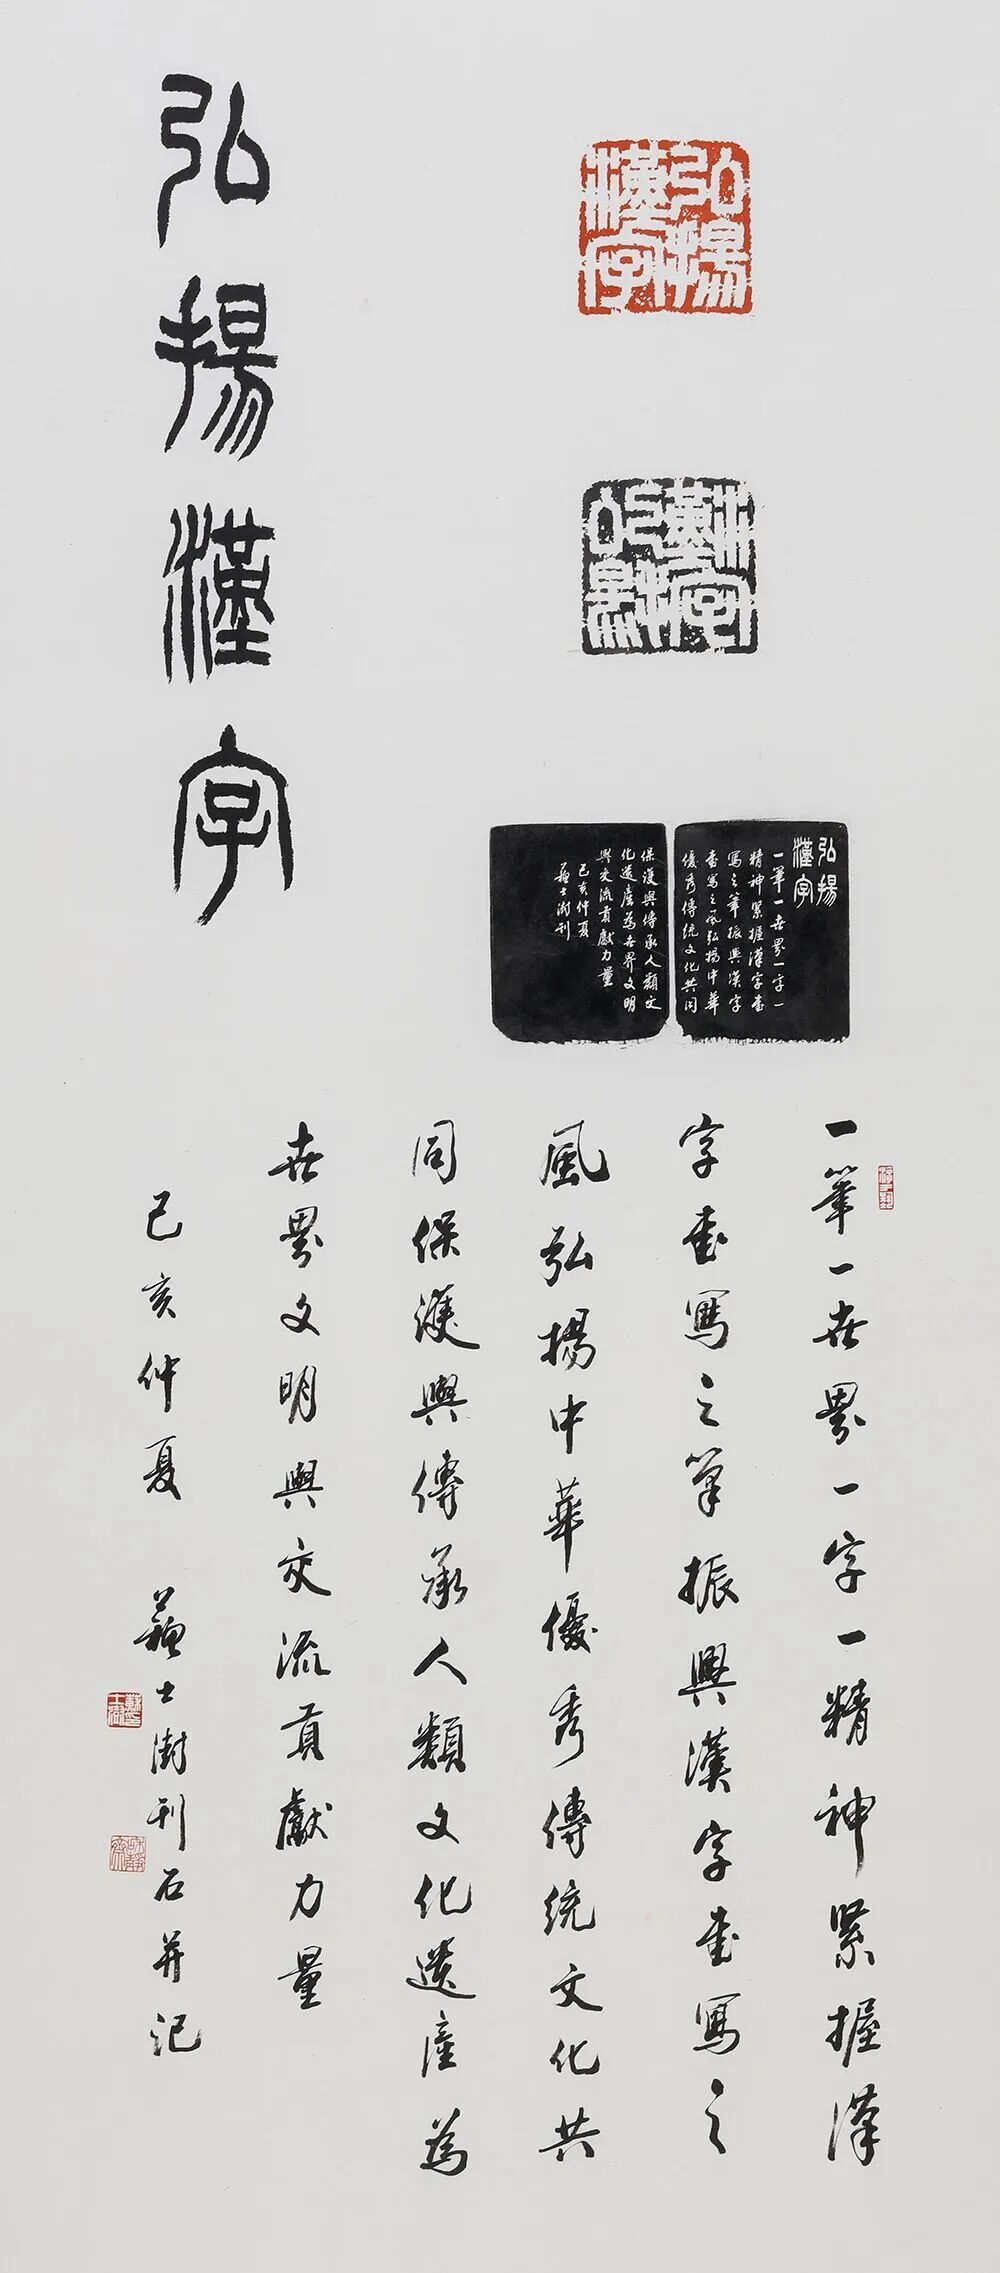 弘揚漢字
弘揚漢字
弘揚漢字
弘揚
漢字
一筆一世界一字一
精神緊握漢字書
寫之筆振興漢字
書寫之風弘揚中華
優秀傳統文化共同
保護與傳承人類文
化遺產為世界文明
與交流貢獻力量
己亥仲夏
蘇士澍刊
一筆一世界一字一精神緊握漢
字書寫之筆振興漢字書寫之
風弘揚中華優秀傳統文化共
同保護與傳承人類文化遺產為
世界文明與交流貢獻力量
己亥仲夏 蘇士澍刊石并記
蘇士澍